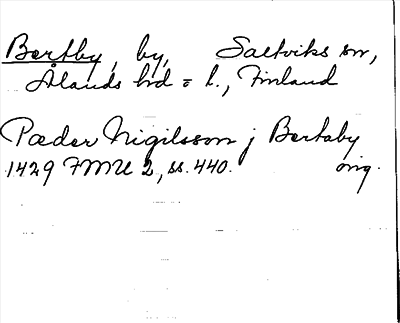 Bertby, by, Saltviks sn,
Ålands hd = l., Finland
Pæder Nigilsson j Bertaby
1429 FMU 2, ss. 440. orig.